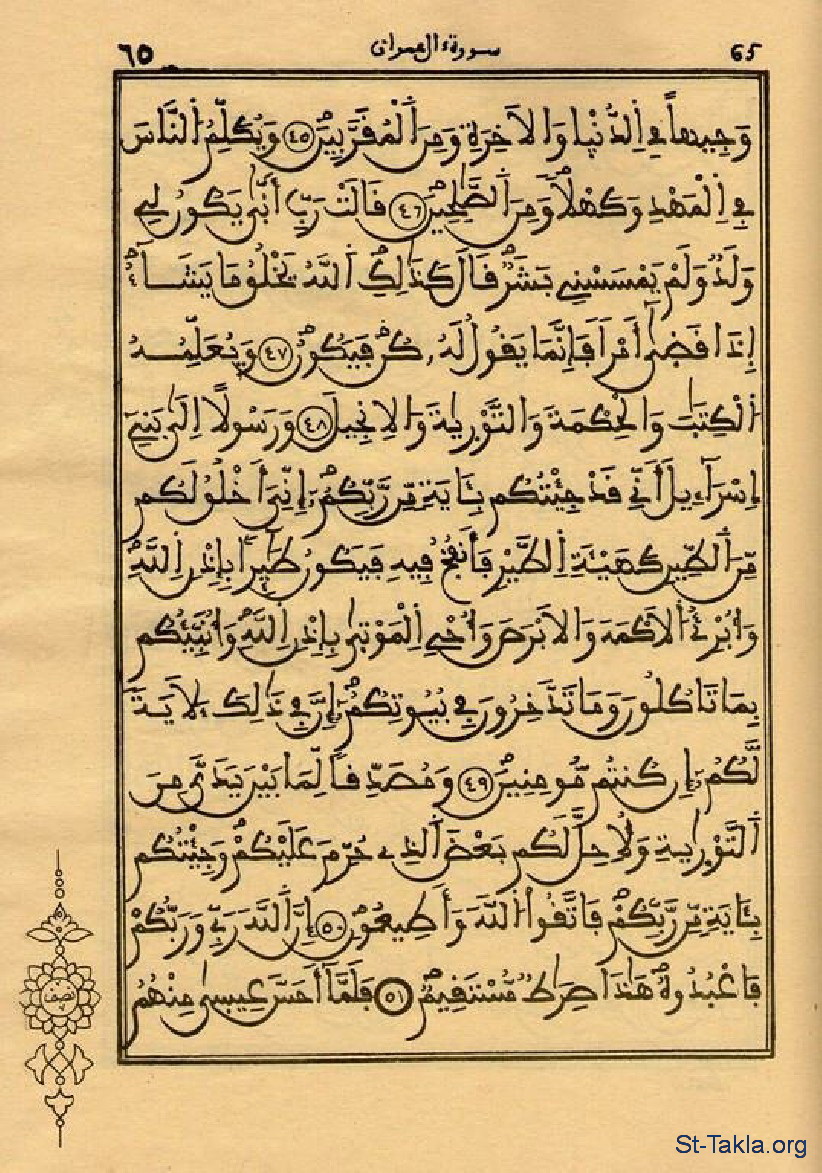 ٦٥ سورة ءال عمران 65
وَجِيهاً فِے اِ۬لدُّنْيٜا وَالَاخِرَةِ وَمِنَ اَ۬لْمُقَرَّبِينَۖ ٤٥ وَيُكَلِّمُ اُ۬لنَّاسَ
فِے اِ۬لْمَهْدِ وَكَهْلاٗ وَمِنَ اَ۬لصَّٰلِحِينَۖ ٤٦ قَالَتْ رَبِّ أَنّٜىٰ يَكُونُ لِے
وَلَدٞ وَلَمْ يَمْسَسْنِے بَشَرٞۖ قَالَ كَذَٰلِكِ اِ۬للَّهُ يَخْلُقُ مَا يَشَآءُۖ
إِذَا قَضٜىٰٓ أَمْراٗ فَإِنَّمَا يَقُولُ لَهُۥ كُن فَيَكُونُۖ ٤٧ وَيُعَلِّمُهُ
اُ۬لْكِتَٰبَ وَالْحِكْمَةَ وَالتَّوْرٜىٰةَ وَالِانجِيلَ ٤٨ وَرَسُولاً اِلَىٰ بَنِےٓ
إِسْرَآءِيلَ أَنِّے قَدْ جِئْتُكُم بِـَٔايَةٖ مِّن رَّبِّكُمُۥٓ إِنِّيَ أَخْلُقُ لَكُم
مِّنَ اَ۬لطِّينِ كَهَيْـَٔةِ اِ۬لطَّيْرِ فَأَنفُخُ فِيهِ فَيَكُونُ طَٰٓئِراَۢ بِإِذْنِ اِ۬للَّهِۖ
وَأُبْرِۓُ اُ۬لَاكْمَهَ وَالَابْرَصَ وَأُحْيِ اِ۬لْمَوْتٜىٰ بِإِذْنِ اِ۬للَّهِۖ وَأُنَبِّئُكُم
بِمَا تَاكُلُونَ وَمَا تَدَّخِرُونَ فِے بُيُوتِكُمُۥٓۖ إِنَّ فِے ذَٰلِكَ ءَلَايَةٗ
لَّكُمُۥٓ إِن كُنتُم مُّومِنِينَۖ ٤٩ وَمُصَدِّقاٗ لِّمَا بَيْنَ يَدَيَّ مِنَ
اَ۬لتَّوْرٜىٰةِ وَلِأُحِلَّ لَكُم بَعْضَ اَ۬لذِے حُرِّمَ عَلَيْكُمْۖ وَجِئْتُكُم
بِـَٔايَةٖ مِّن رَّبِّكُمْۖ فَاتَّقُواْ اُ۬للَّهَ وَأَطِيعُونِۖ ٥٠ إِنَّ اَ۬للَّهَ رَبِّے وَرَبُّكُمْ
فَاعْبُدُوهُۖ هَٰذَا صِرَٰطٞ مُّسْتَقِيمٞۖ ٥١ فَلَمَّآ أَحَسَّ عِيسٜىٰ مِنْهُمُ
نصف
St-Takla.org